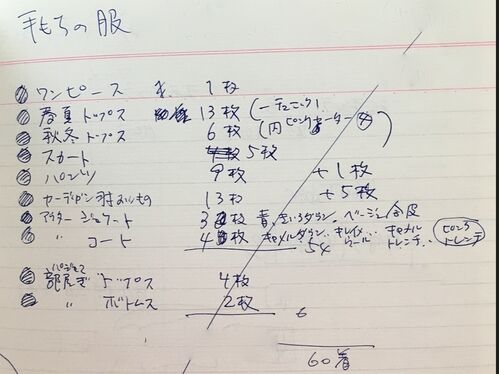 手もちの服
ワンピース 1枚
春夏トップス 13枚 (一チュニック1
秋冬トップス 6枚 (内ピンクセーター
スカート 5枚
パンツ 9枚 +1枚
カーデガン 羽おりもの 13 +5枚
アウター ジャケート 3枚 青、きいろダウン、ベージュ合皮
〃 コート 4枚 キャメルダウン、キレイ ウール キャメルトレンチ ピンクトレンチ
54
パジャマ
部屋ぎ トップス 4枚
〃 ボトムス 2枚
6
60着